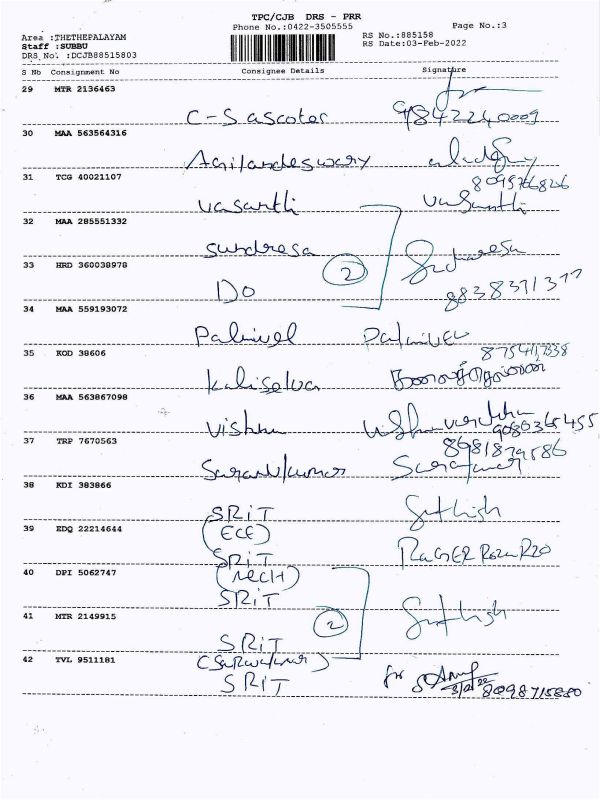 TPC/CJB DRS - PRR
Phone No.:0422-3505555
Page No.:3
Area :THETHEPALAYAM
RS No.:885158
Staff :SUBBU
RS Date:03-Feb-2022
DRS No. :DCJB88515803
S No Consignment No Consignee Details Signature
29 MTR 2136463
C-Sascoter 9842240009
30 MAA 563564316
Agilandeswary
31 TCG 40021107
8095766826
vasanthi vaSanthi
32 MAA 285551332
sundresa
33 HRD 360038978
2
Do
34 MAA 559193072
Palnivel
35 KOD 38606
Kaliselva
36 MAA 563867098
Vishnu
9080365455
37 TRP 7670563
8681879586
38 KDI 383866
SRiT
Sathish
39 EDQ 22214644
(ECE)
SRiT
40 DPI 5062747
(MECH)
SRiT
41 MTR 2149915
2
Sathish
SRiT
42 TVL 9511181
SRiT
for
3/2/22 8098715880